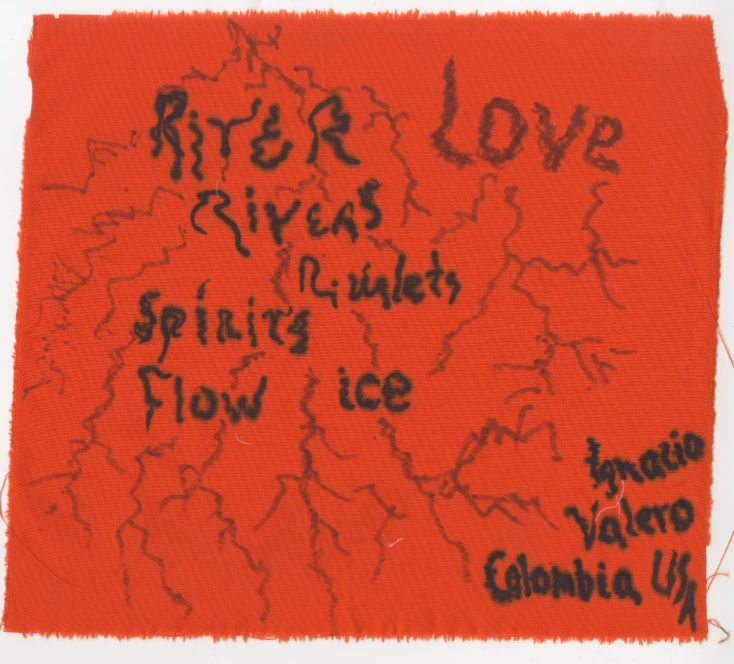 RiveR Love
Rivers
Rivulets
Spirits
Flow ice
Ignacio
Valero
Colombia USA